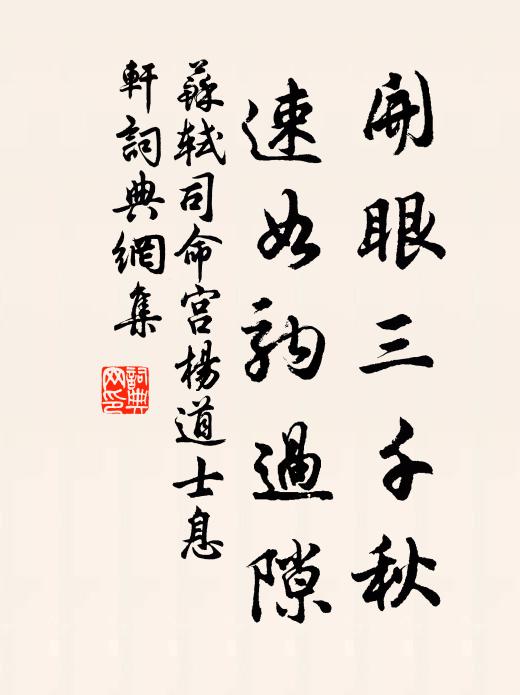 開眼三千秋
速如駒過隙
蘇軾司命宮楊道士息
軒詞典網集
詞典
网印